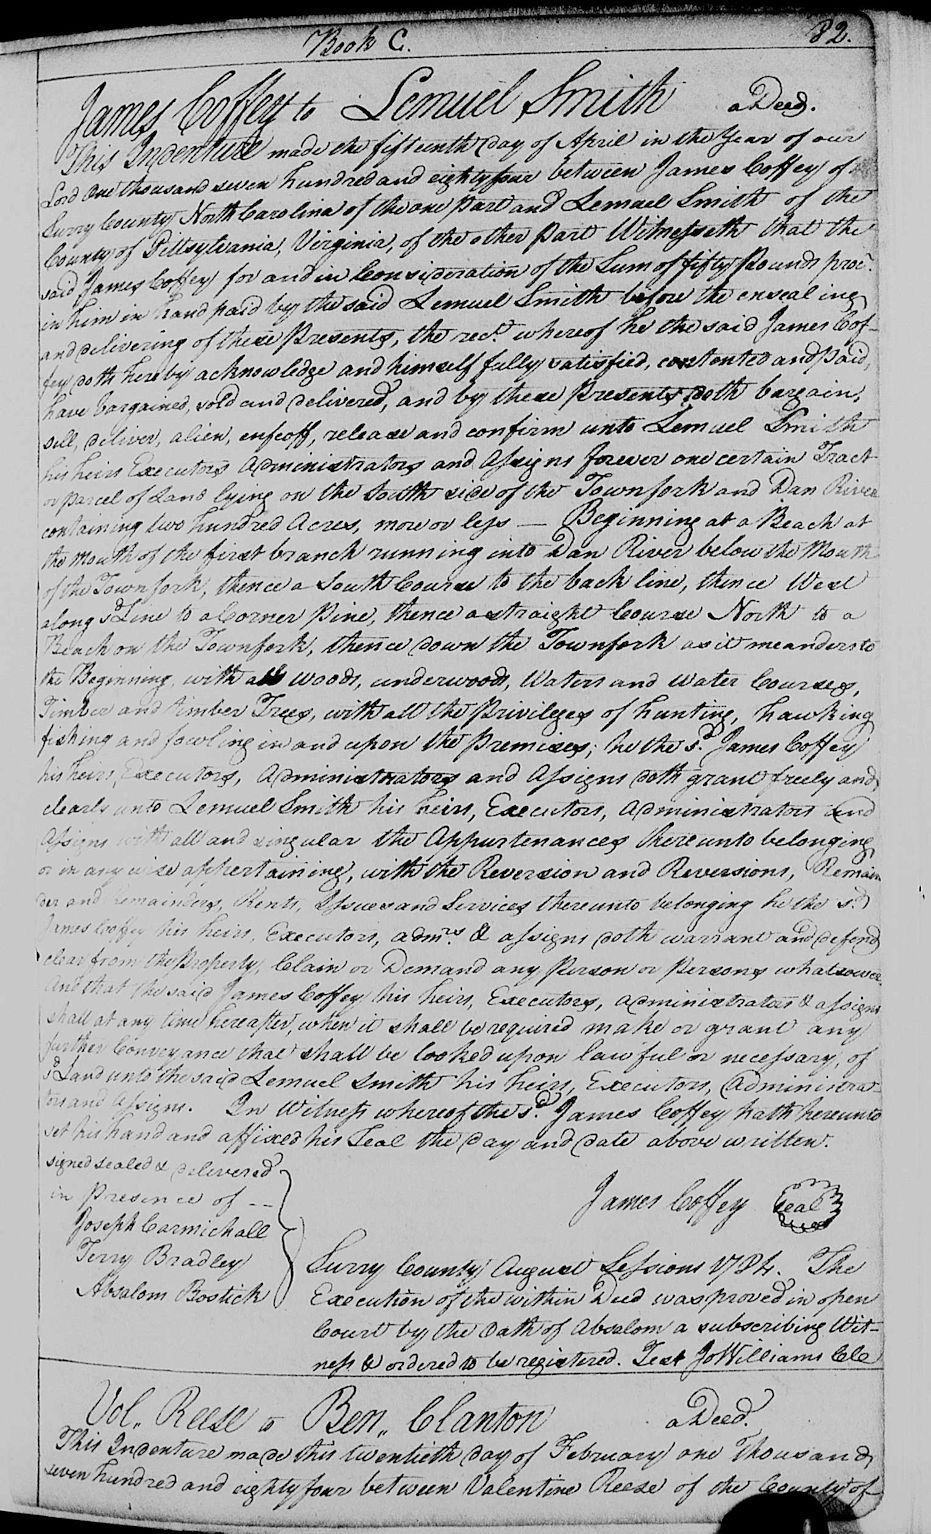 Book C. 82.
James Coffey to Lemuel Smith a Deed.
This Indenture made the fifteenth day of April in the Year of our
Lord One thousand seven hundred and eighty four between James Coffey of
Surry County North Carolina of the one Part and Lemuel Smith of the
County of Pittsylvania, Virginia, of the other Part Witnesseth that the
said James Coffey for and in Consideration of the Sum of fifty Pounds proc.
in him in hand paid by the said Lemuel Smith before the ensealing
and delivering of these Presents, the rect. whereof he the said James Cof-
fey doth hereby acknowledge and himself fully satisfied, contented and paid,
have bargained, sold and delivered, and by these Presents doth bargain,
sell, deliver, alien, enfeoff, release and confirm unto Lemuel Smith
his heirs Executors Administrators and Assigns forever one certain Tract
or parcel of Land lying on the South side of the Townfork and Dan River
containing two hundred Acres, more or less — Beginning at a Beach at
the Mouth of the first branch running into Dan River below the Mouth
of the Townfork, thence a South Course to the back line, thence West
along sd. Line to a Corner Pine, thence a straight Course North to a
Beach on the Townfork, thence down the Townfork as it meanders to
the Beginning, with all woods, underwoods, Waters and Water Courses,
Timber and timber Trees, with all the Privileges of hunting, hawking
fishing and fowling in and upon the Premises; he the sd. James Coffey
his heirs, Executors, Administrators and Assigns doth grant freely and
clearly unto Lemuel Smith his heirs, Executors, Administrators and
Assigns with all and singular the Appurtenances thereunto belonging
or in any wise appertaining, with the Reversion and Reversions, Remain
der and remainders, Rents, Issues and Services thereunto belonging he the sd.
James Coffey his heirs, Executors, admrs. & assigns doth warrant and defend
clear from the Property, Claim or Demand any Person or Persons whatsoever
And that the said James Coffey his heirs, Executors, administrators & assigns
shall at any time hereafter, when it shall be required make or grant any
further Conveyance that shall be looked upon lawful or necessary, of
sd. Land unto the said Lemuel Smith his heirs, Executors, Administra-
tors and Assigns. In Witness whereof the sd. James Coffey hath hereunto
set his hand and affixed his Seal the day and date above written.
signed sealed & delivered
in Presence of --
James Coffey Seal
Joseph Carmichall
Terry Bradley
Absalom Bostick
Surry County August Sessions 1784. The
Execution of the within Deed was proved in open
Court by the Oath of Absalom a subscribing Wit-
ness & ordered to be registered. Test Jo Williams Clc
Vol,, Reese to Ben,, Clanton a Deed.
This Indenture made this twentieth day of February one Thousand
seven hundred and eighty four between Valentine Reese of the County of